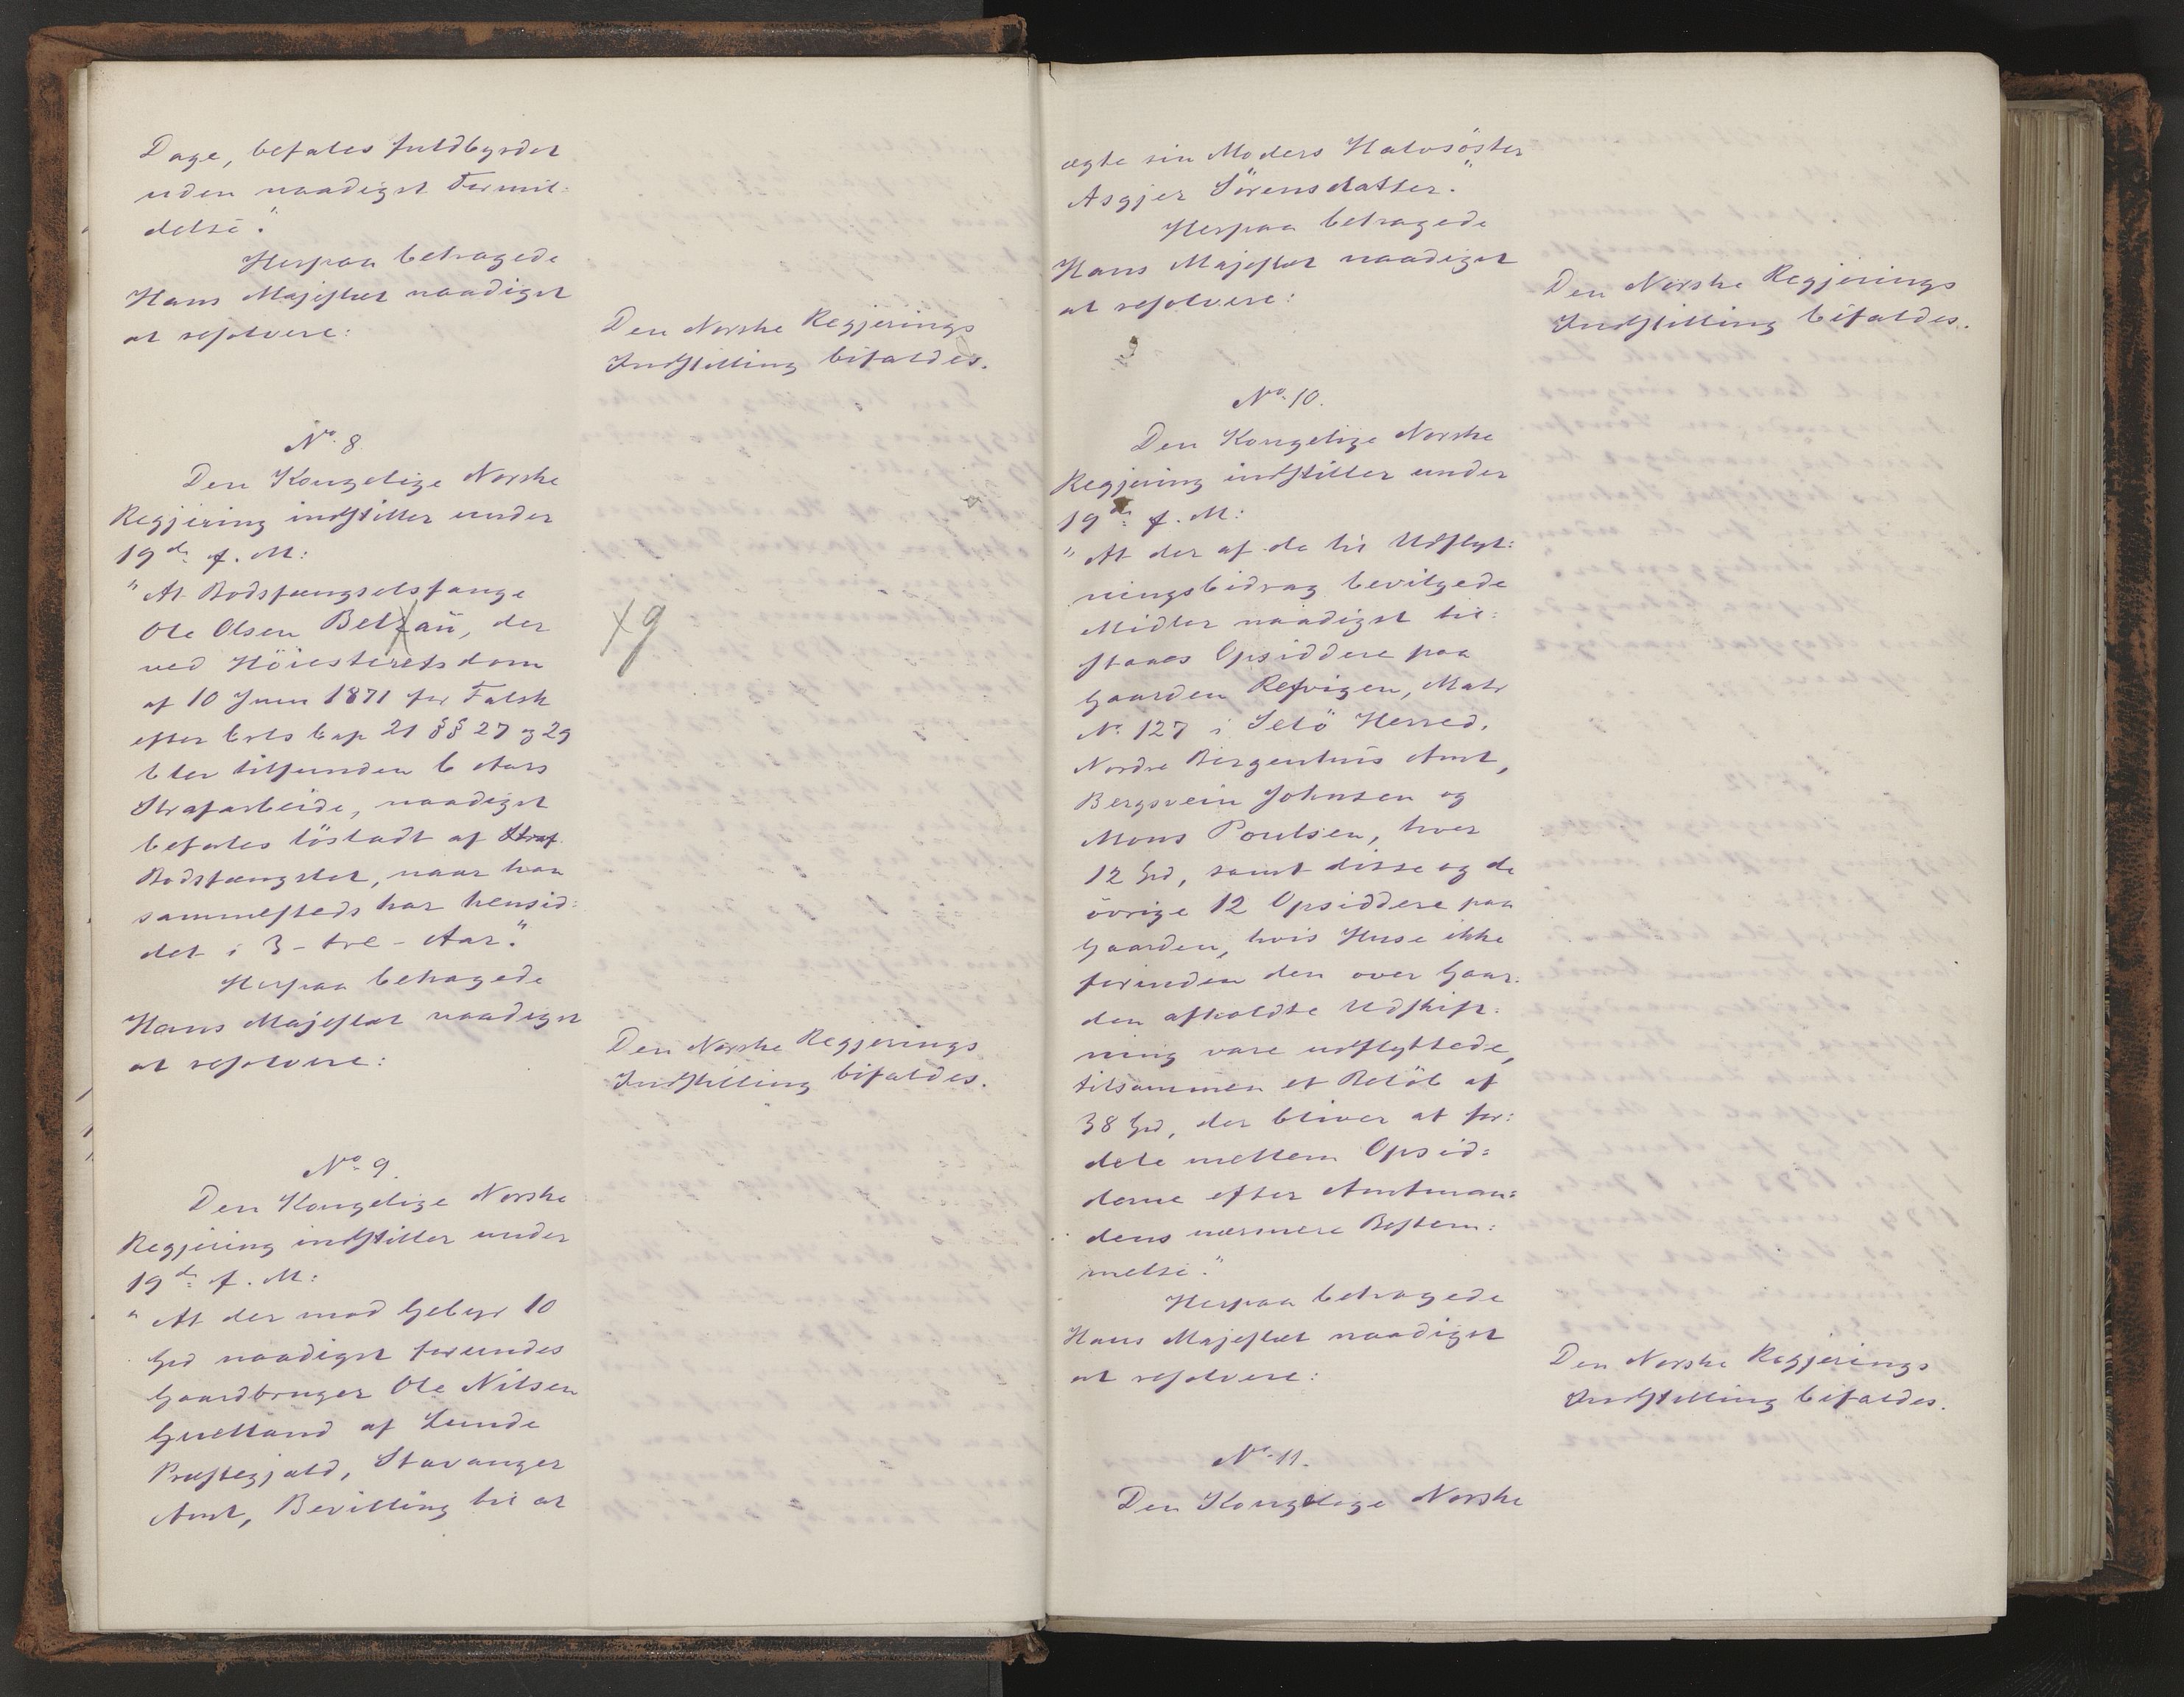 Dage, befales fuldbyrdet
uden naadigst Formil-
delse."
Herpaa behagede
Hans Majestæt naadigst
at resolvere:
Den Norske Regjerings
Indstilling bifaldes.
No 8
Den Kongelige Norske
Regjering indstiller under
19de f. M:
"At Bodsfængselsfange
Ole Olsen Belzaü, der
ved Höiesteretsdom
af 10 Juni 1871 for Falsk
efter Crls Cap 21 §§ 27 og 29
blev tilfunden 6 Aars
Strafarbeide, naadigst
befales lösladt af Straf
Bodsfængslet, naar han
sammesteds har hensid-
det i 3 - tre - Aar."
Herpaa behagede
Hans Majestæt naadigst
at resolvere:
x g
Den Norske Regjerings
Indstilling bifaldes.
No 9.
Den Kongelige Norske
Regjering indstiller under
19de f. M:
"At der mod Gebyr 10
Spd naadigst forundes
Gaardbruger Ole Nilsen
Guelland af Lunde
Præstegjæld, Stavanger
Amt, Bevilling til at
ægte sin Moders Halvsöster
Asgjer Sörensdatter."
Herpaa behagede
Hans Majestæt naadigst
at resolvere:
Den Norske Regjerings
Indstilling bifaldes.
No 10.
Den Kongelige Norske
Regjering indstiller under
19de f. M:
"At der af de til Udflyt-
ningsbidrag bevilgede
Midler naadigst til-
staaes Opsiddere paa
Gaarden Refvigen, Matr
No 127 i Selö Herred,
Nordre Bergenhus Amt,
Bergsvein Johnsen og
Mons Poulsen, hver
12 Spd, samt disse og de
övrige 12 Opsiddere paa
Gaarden, hvis Huse ikke
forinden den over Gaar-
den afholdte Udskift-
ning vare udflyttede,
tilsammen et Belöb af
38 Spd, der bliver at for-
dele mellem Opsid-
derne efter Amtman-
dens nærmere Bestem-
melse."
Herpaa behagede
Hans Majestæt naadigst
at resolvere:
Den Norske Regjerings
Indstilling bifaldes.
No 11.
Den Kongelige Norske